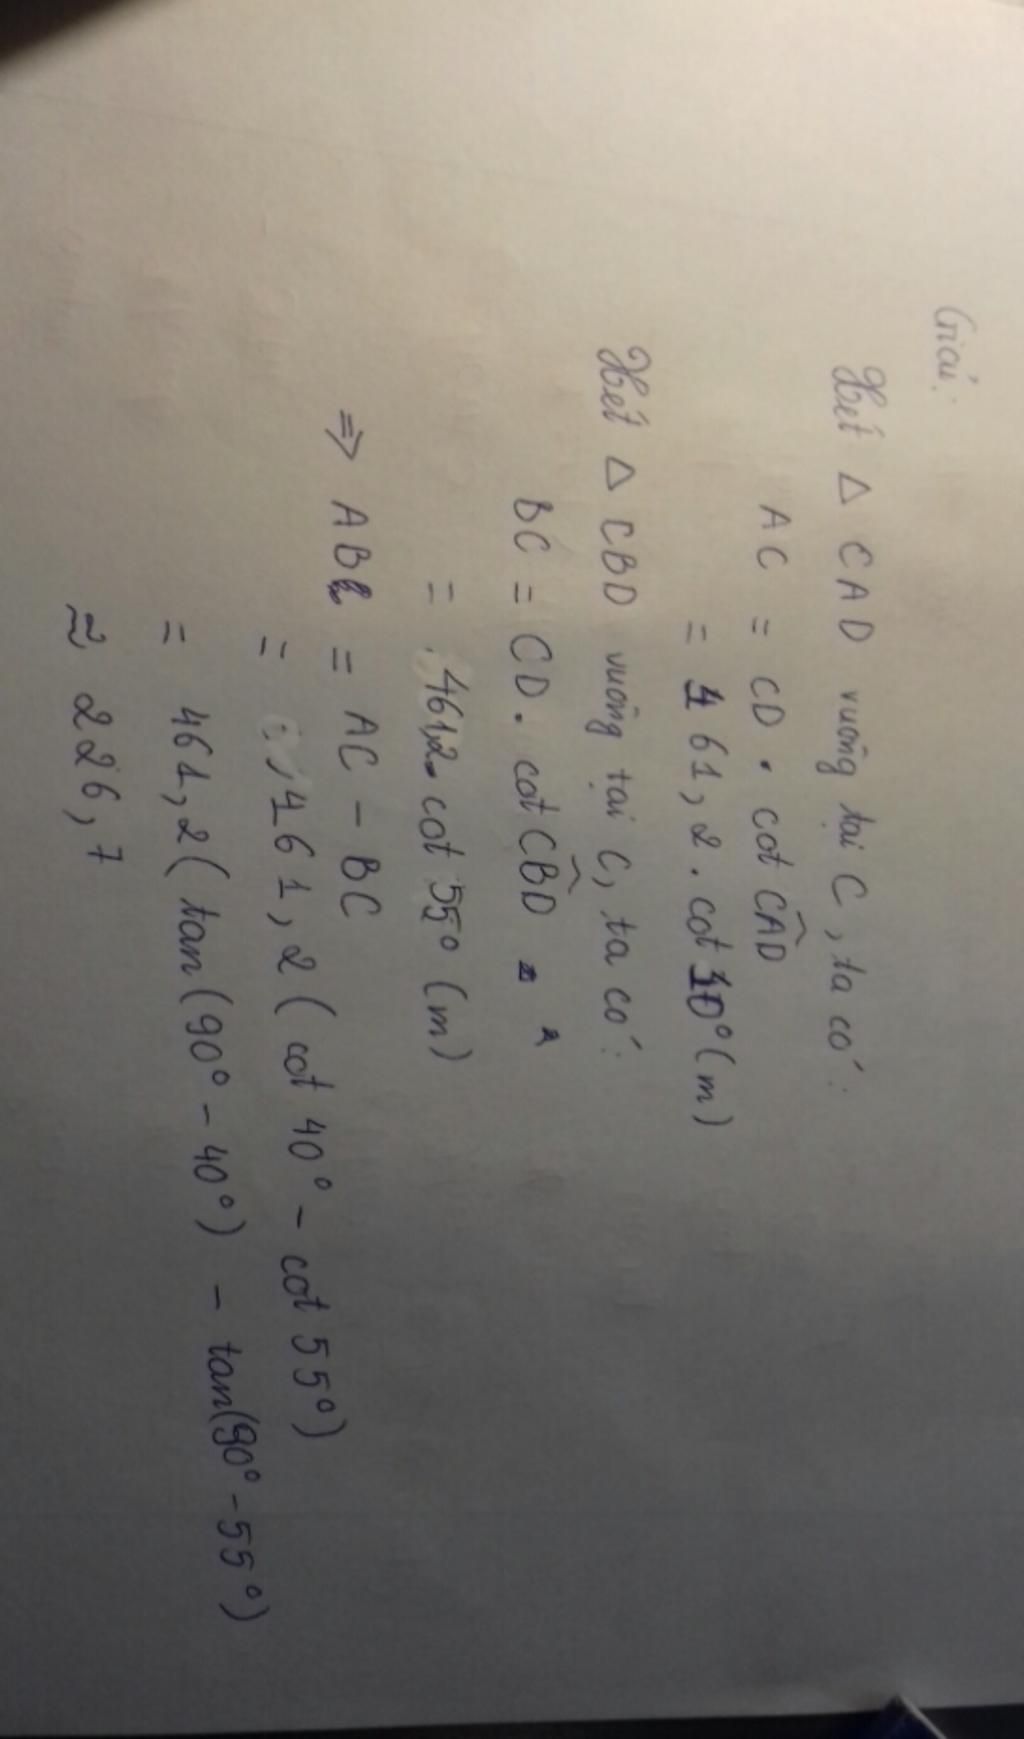 Giải:
Xét △ CAD vuông tại C, ta có:
AC = CD . cot CAD
= 461,2 . cot 40° (m)
Xét △ CBD vuông tại C, ta có:
BC = CD . cot CBD
= 461,2 . cot 55° (m)
⇒ AB = AC - BC
= 461,2 ( cot 40° - cot 55°)
= 461,2 ( tan(90° - 40°) - tan(90° - 55°)
≈ 226,7